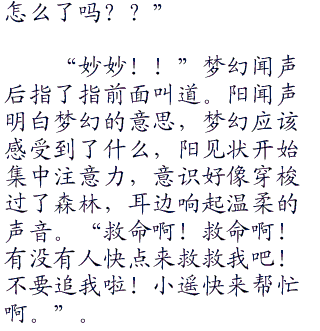 怎么了吗？？”
“妙妙！！”梦幻闻声
后指了指前面叫道。阳闻声
明白梦幻的意思，梦幻应该
感受到了什么，阳见状开始
集中注意力，意识好像穿梭
过了森林，耳边响起温柔的
声音。“救命啊！救命啊！
有没有人快点来救救我吧！
不要追我啦！小遥快来帮忙
啊。”。